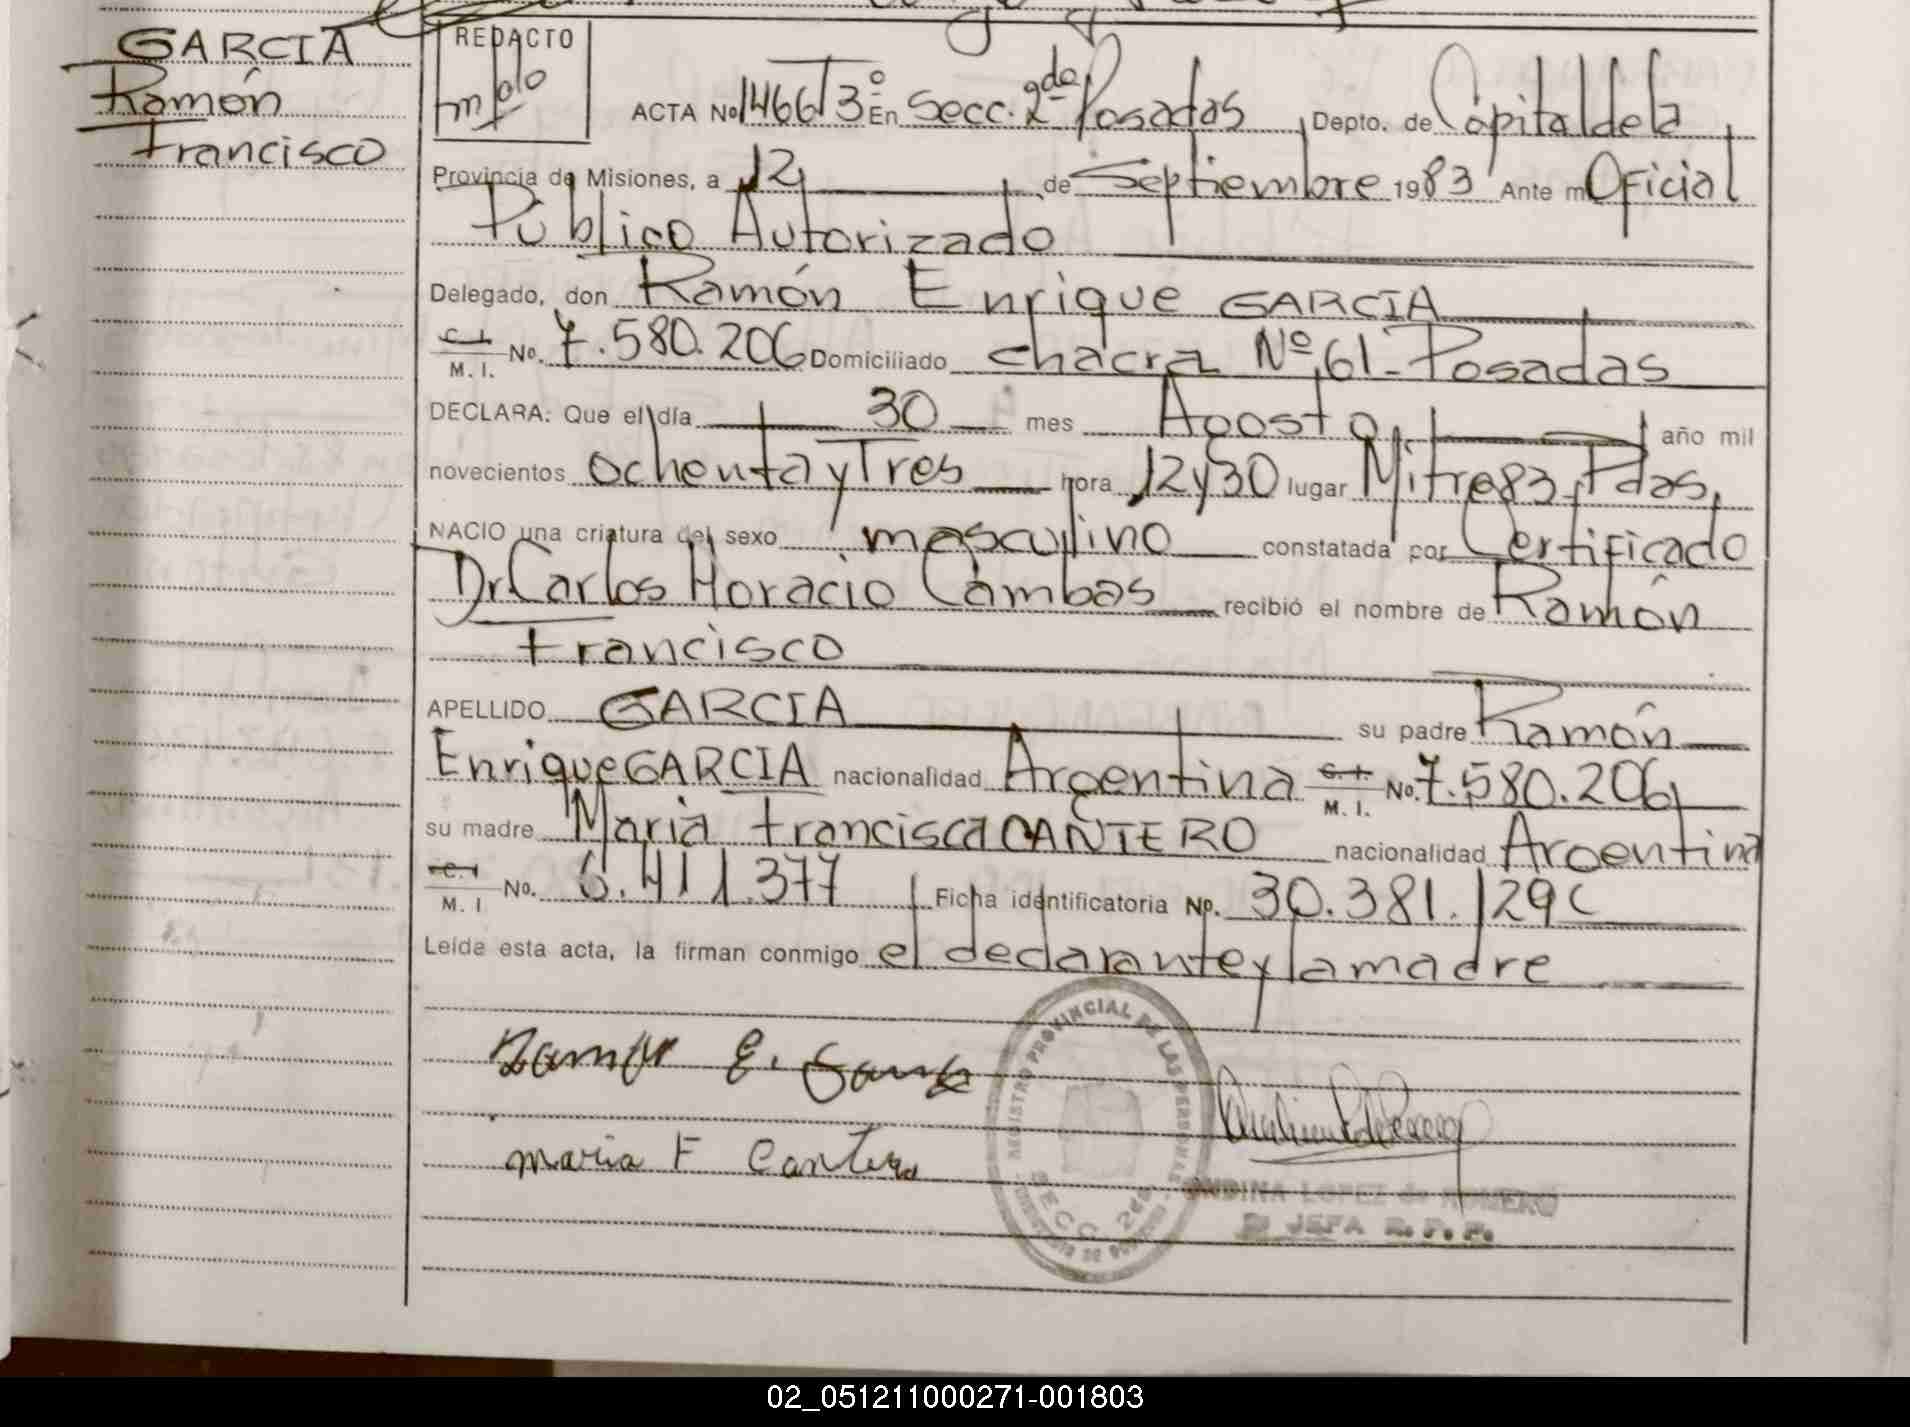 GARCIA
Ramón
Francisco
REDACTO
ACTA No 1466 T 3º En Secc. 2da Posadas Depto. de Capital de la
Provincia de Misiones, a 12 de Septiembre 1983 Ante mi Oficial
Público Autorizado
Delegado, don Ramón Enrique GARCIA
C. I. M. I. No. 7.580.206 Domiciliado chacra Nº 61 - Posadas
DECLARA: Que el día 30 mes Agosto año mil
novecientos ochenta y Tres hora 12 y 30 lugar Mitre 83, Pdas,
NACIO una criatura del sexo masculino constatada por Certificado
Dr. Carlos Horacio Cambas recibió el nombre de Ramón
Francisco
APELLIDO GARCIA su padre Ramón
Enrique GARCIA nacionalidad Argentina C. I. M. I. No. 7.580.206
su madre Maria Francisca CANTERO nacionalidad Argentina
C. I. M. I No. 6.411.377 Ficha identificatoria No. 30.381.129 C
Leída esta acta, la firman conmigo el declarante y la madre
Ramon E. Garcia
maria F Cantero
REGISTRO PROVINCIAL DE LAS PERSONAS
SECC 2da
ONDINA LOPEZ de ROMERO
JEFA R. P. P.
02_051211000271-001803